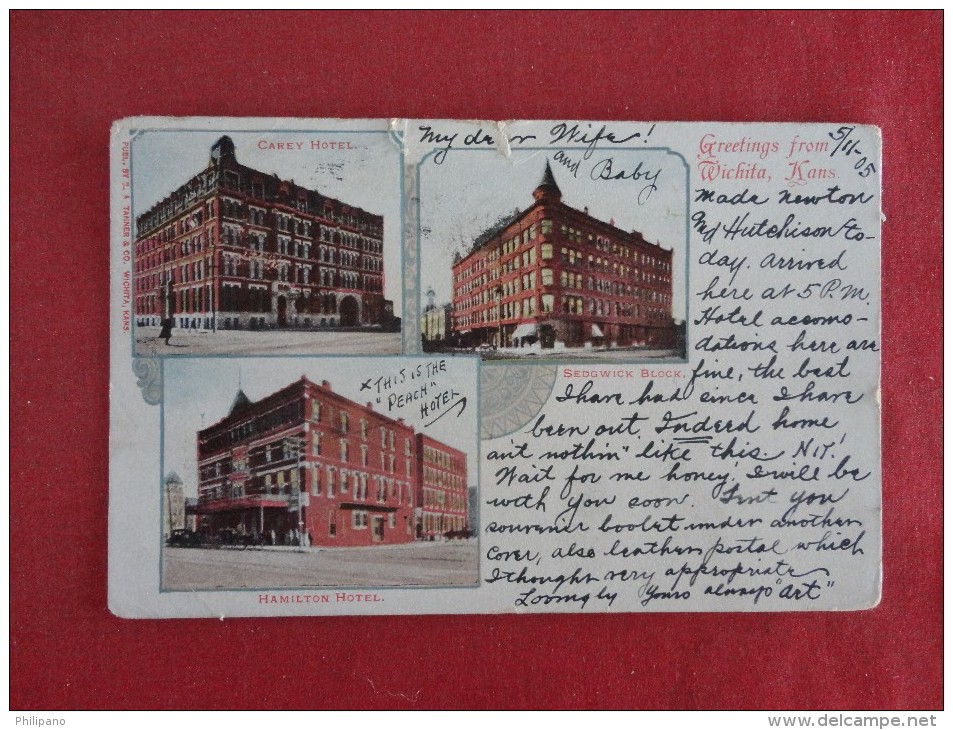 CAREY HOTEL.
PUBL. BY TANNER & CO. WICHITA, KANS.
My dear Wife!
and Baby
Greetings from
Wichita, Kans.
5/11-05
Made Newton
and Hutchison to-
day. Arrived
here at 5 P.M.
Hotel accomo-
dations here are
fine, the best
I have had since I have
been out. Indeed home
ain't nothin" like this. NIT!
Wait for me honey, I will be
with you soon. Sent you
souvenir boolet under another
cover, also leathern postal which
I thought very appropriate
Lovingly Yours always "Art"
SEDGWICK BLOCK.
x THIS IS THE
"PEACH"
HOTEL
HAMILTON HOTEL.
Philipano
http://www.delcampe.net